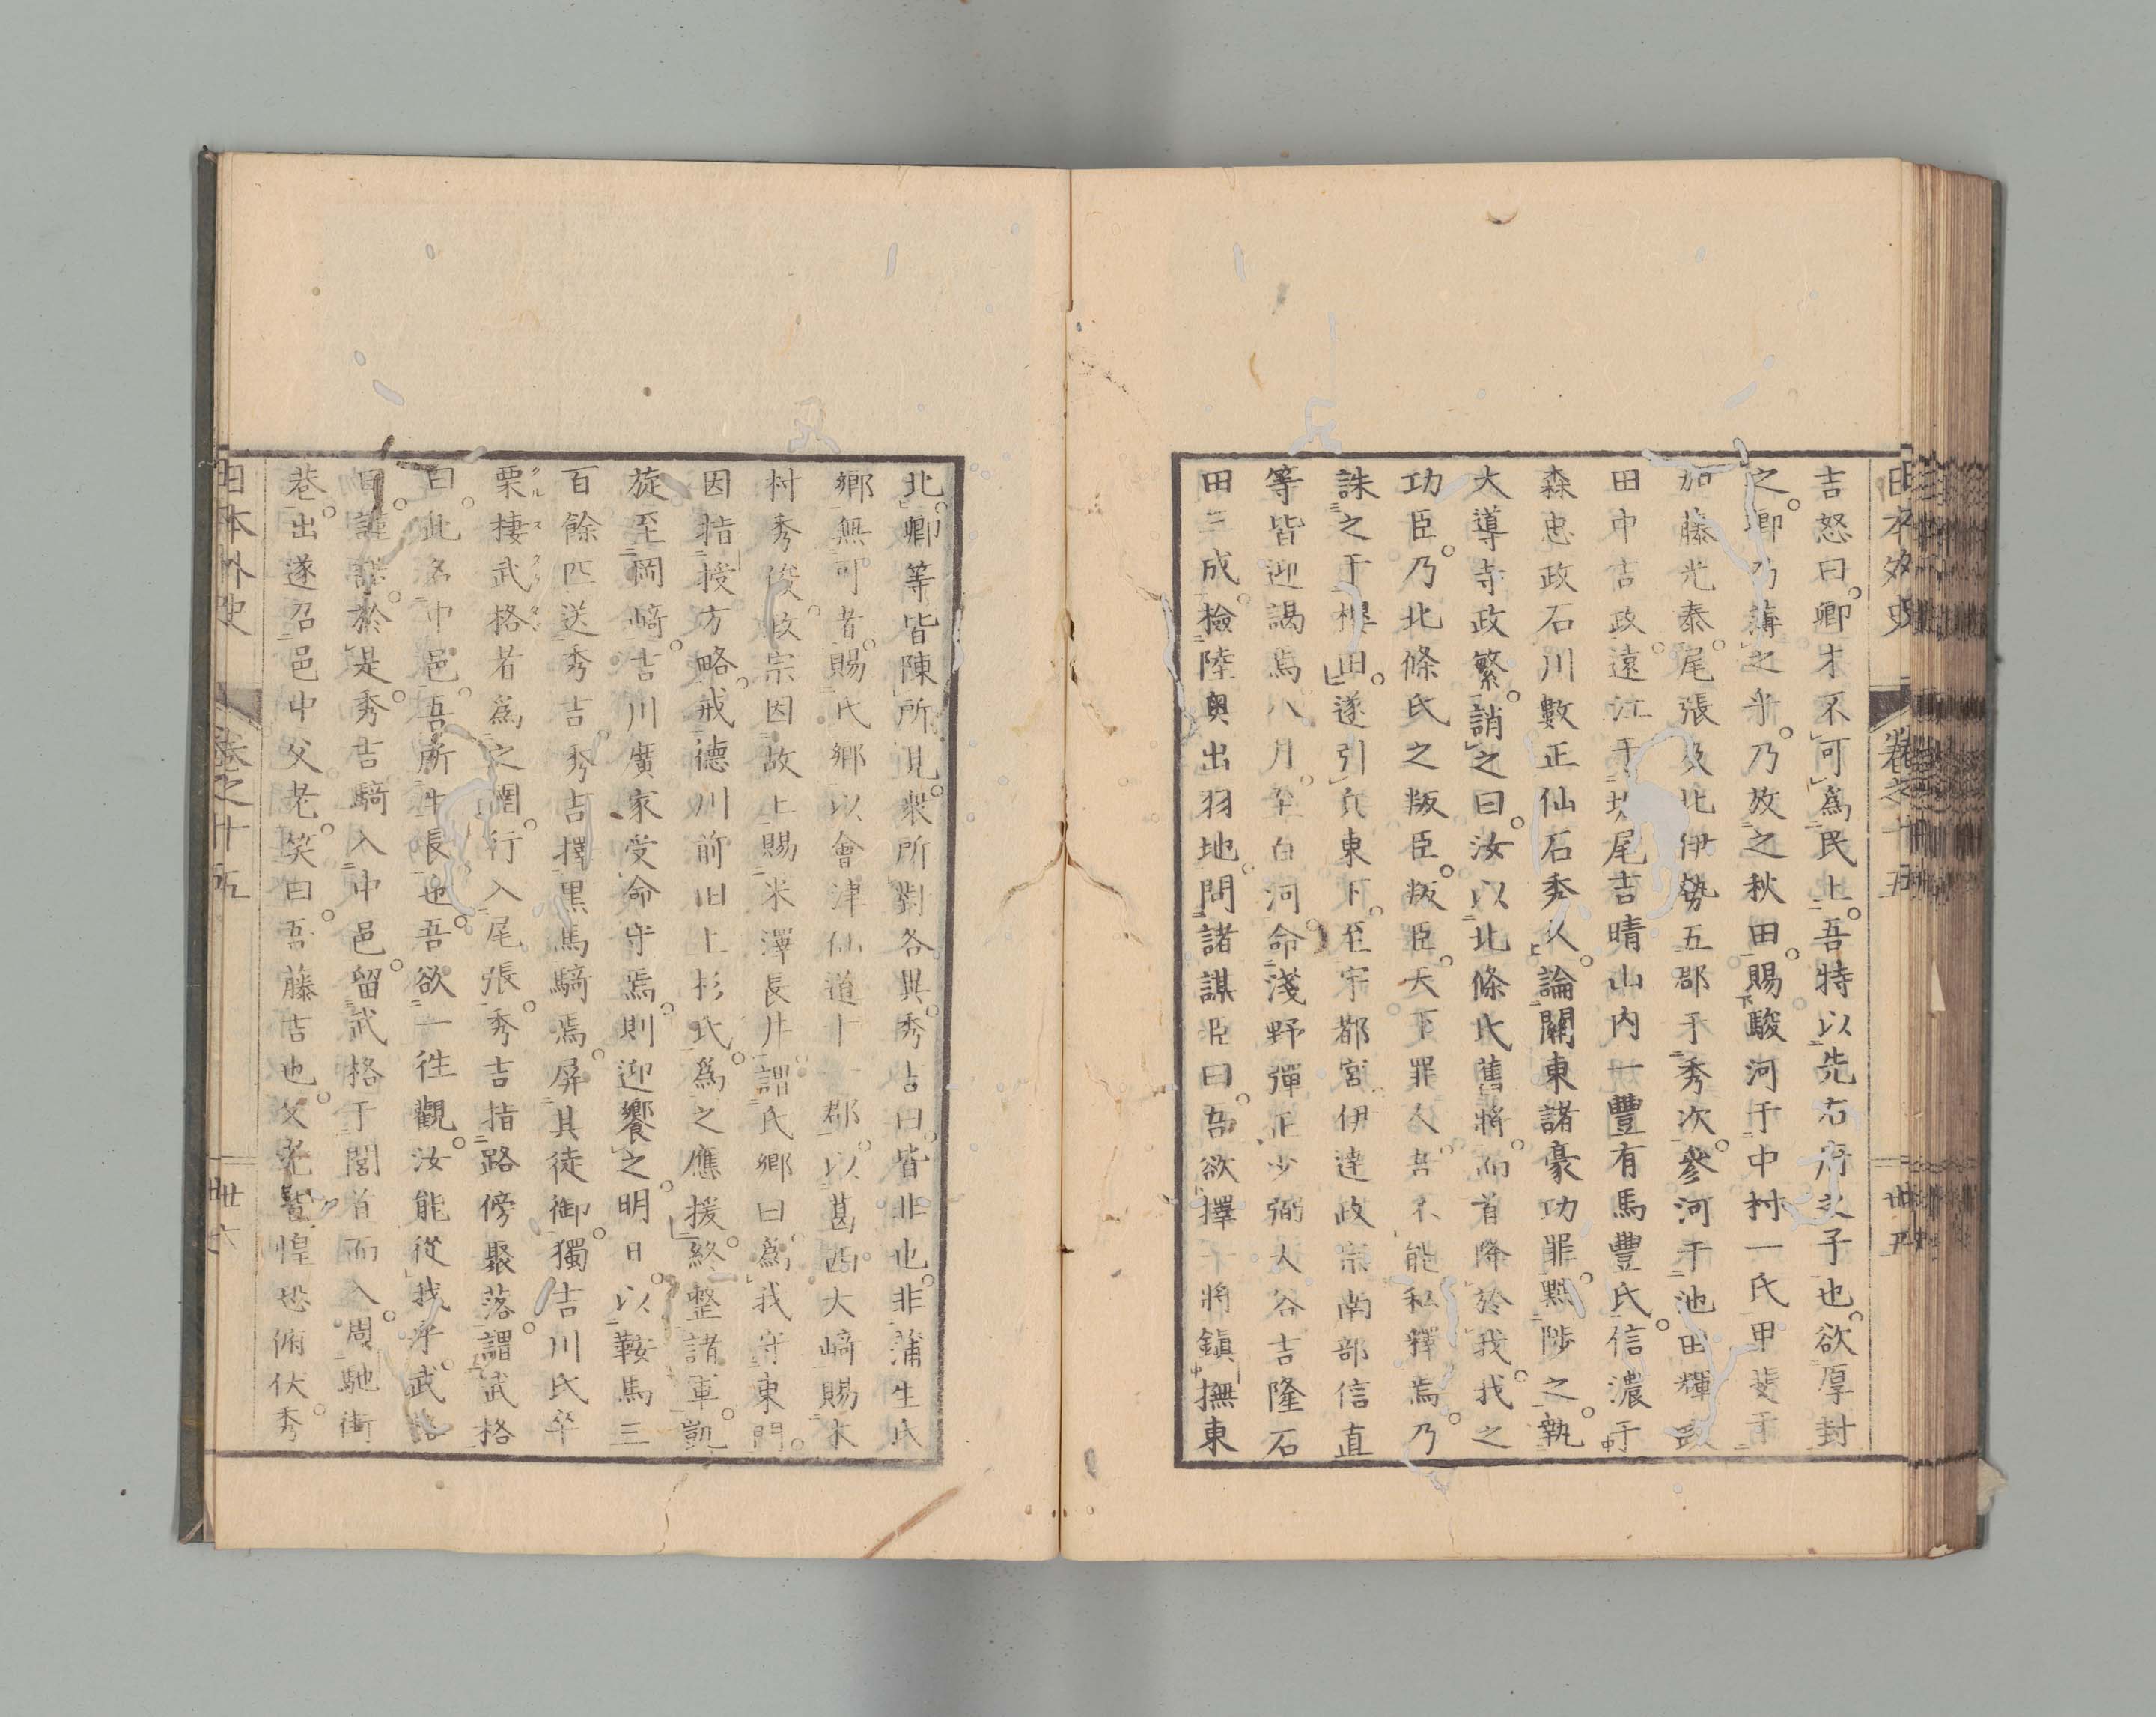 日本外史 卷之十五 卅五
吉怒曰。卿才不可爲民上。吾特以先右府之子也。欲厚封
之。卿乃薄之乎。乃放之秋田。賜駿河于中村一氏甲斐于
加藤光泰。尾張及北伊勢五郡于秀次。參河于池田輝政
田中吉政。遠江于堀尾吉晴山内一豐有馬豐氏。信濃于
森忠政石川數正仙石秀久。論關東諸豪功罪。黜陟之。執
大導寺政繁。誚之曰。汝以北條氏舊將。而首降於我。我之
功臣。乃北條氏之叛臣。叛臣。天下罪人。吾不能私釋焉。乃
誅之于櫻田。遂引兵東下。至宇都宮。伊達政宗南部信直
等皆迎謁焉。八月。至白河。命淺野彈正少弼大谷吉隆石
田三成。檢陸奧出羽地。問諸謀臣曰。吾欲擇一將鎭撫東
北。卿等皆陳所見。衆所對各異。秀吉曰。皆非也。非蒲生氏
鄉無可者。賜氏鄉以會津仙道十一郡。以葛西大﨑賜木
村秀俊。政宗因故上賜米澤長井。謂氏鄉曰。爲我守東門。
因指授方略。戒德川前田上杉氏。爲之應援。終整諸軍凱
旋至岡﨑。吉川廣家受命守焉。則迎饗之。明日。以鞍馬三
百餘匹送秀吉。秀吉擇黑馬騎焉。屏其徒御。獨吉川氏卒
栗棲武格者爲之圉。行入尾張。秀吉指路傍聚落。謂武格
曰。此名中邑。吾所生長也。吾欲一往觀。汝能從我乎。武格
曰。謹諾。於是。秀吉騎入中邑。留武格于閭首而入。周馳街
巷。出遂召邑中父老。笑曰。吾藤吉也。父老皆惶恐俯伏。秀
日本外史 卷之十五 卅六